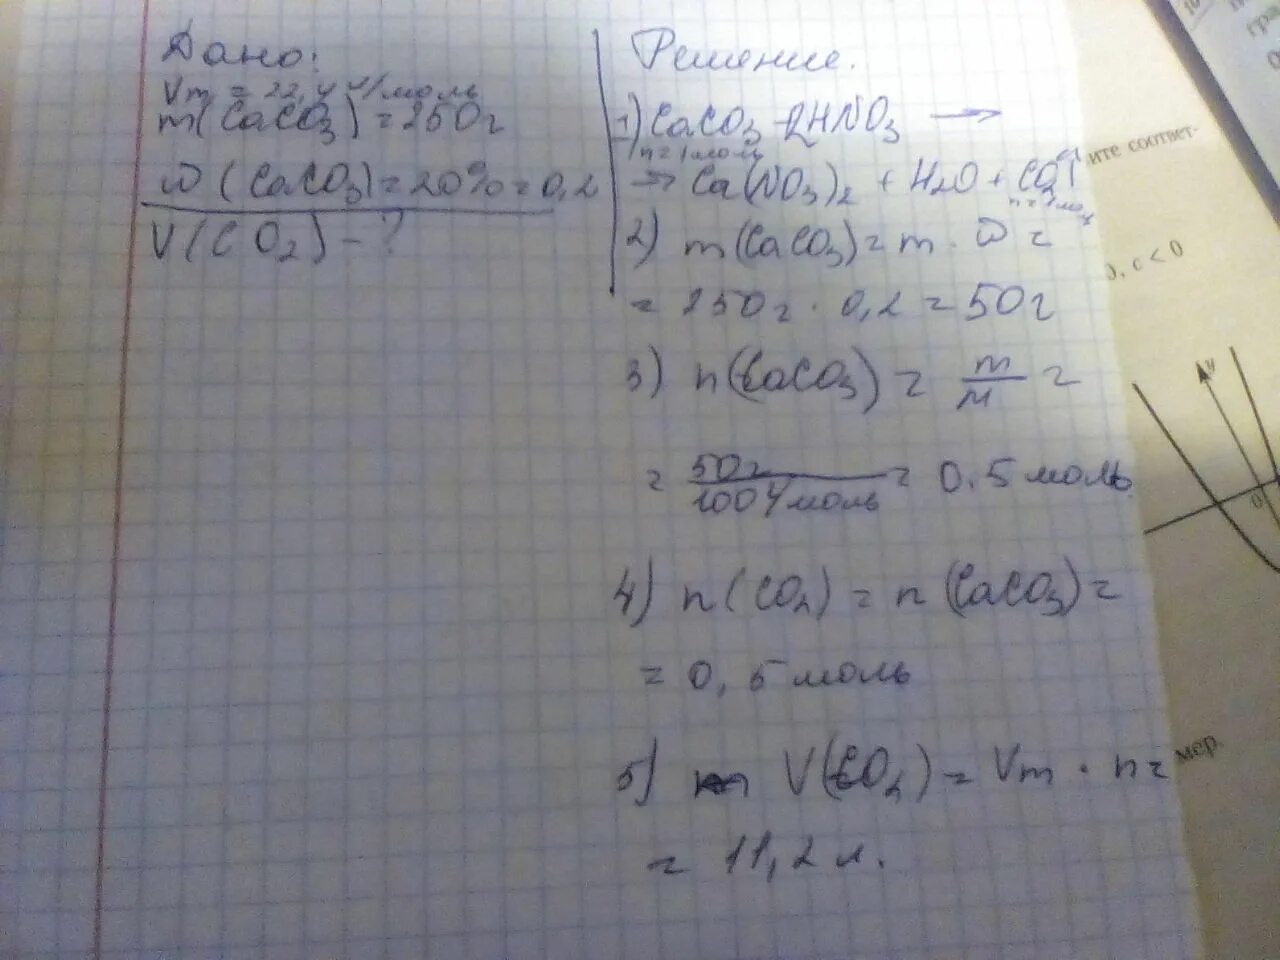 Дано:
Vm = 22,4 л/моль
m(CaCO3) = 250г
ω(CaCO3) = 20% = 0,2
V(CO2) - ?
Решение.
1) CaCO3 + 2HNO3 →
n=1моль
→ Ca(NO3)2 + H2O + CO2↑
n=1моль
2) m(CaCO3) = m · ω =
= 250г · 0,2 = 50г
3) n(CaCO3) = m/M =
= 50г/100г/моль = 0,5 моль.
4) n(CO2) = n(CaCO3) =
= 0,5 моль
5) V(CO2) = Vm · n =
= 11,2 л.
ите соответ-
, c < 0
y
0
мер.